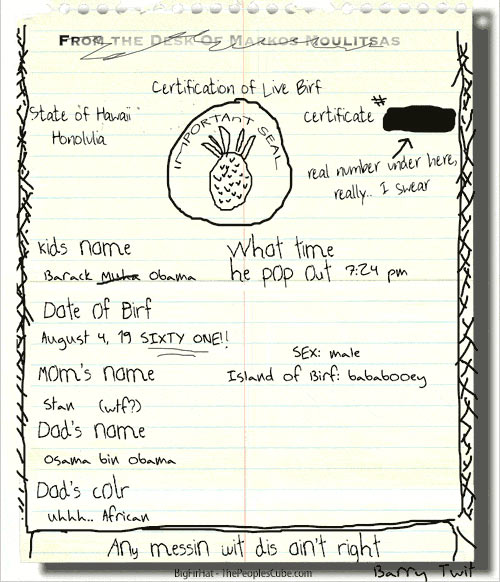 FROM THE DESK OF MARKOS MOULITSAS
Certification of Live Birf
State of Hawaii
Honolulia
IMPORTANT SEAL
certificate #
real number under here,
really.. I swear
kids name
Barack Muha Obama
What time
he pop out 7:24 pm
Date of Birf
August 4, 19 SIXTY ONE!!
SEX: male
Island of Birf: bababooey
Mom's name
Stan (wtf?)
Dad's name
Osama bin Obama
Dad's colr
uhhh.. African
Any messin wit dis ain't right
BigFurHat - ThePeoplesCube.com
Barry Twit